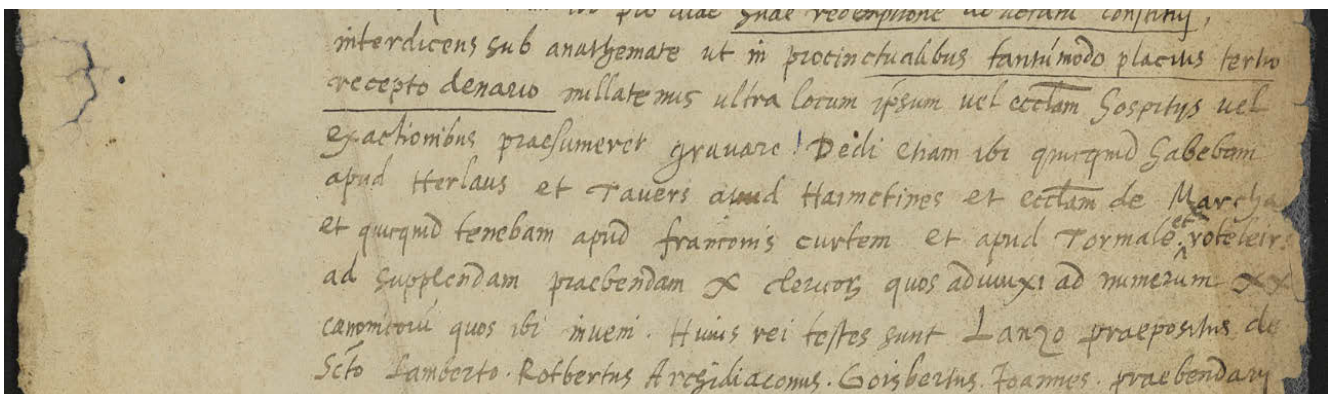 pro suae redemptione constitui,
interdicens sub anathemate ut in procinctualibus tantúmodo placitis tertio
recepto denario nullatenus ultra locum ipsum uel eccłam hospitijs uel
exactionibus praesumeret gravare! Dedi etiam ibi quicquid habebam
apud Herlaus et Tavers apud Haimetines et eccłam de Marcha
et quicquid tenebam apud franconis curtem et apud Tormale et roteleirs
ad supplendam praebendam X clericoꝝ quos adiunxi ad numerum XX
canonicorū quos ibi inveni. Huius rei testes sunt Lanzo praepositus de
Scto Lamberto. Rotbertus Archidiaconus. Goisbertus. Joannes. praebendarij